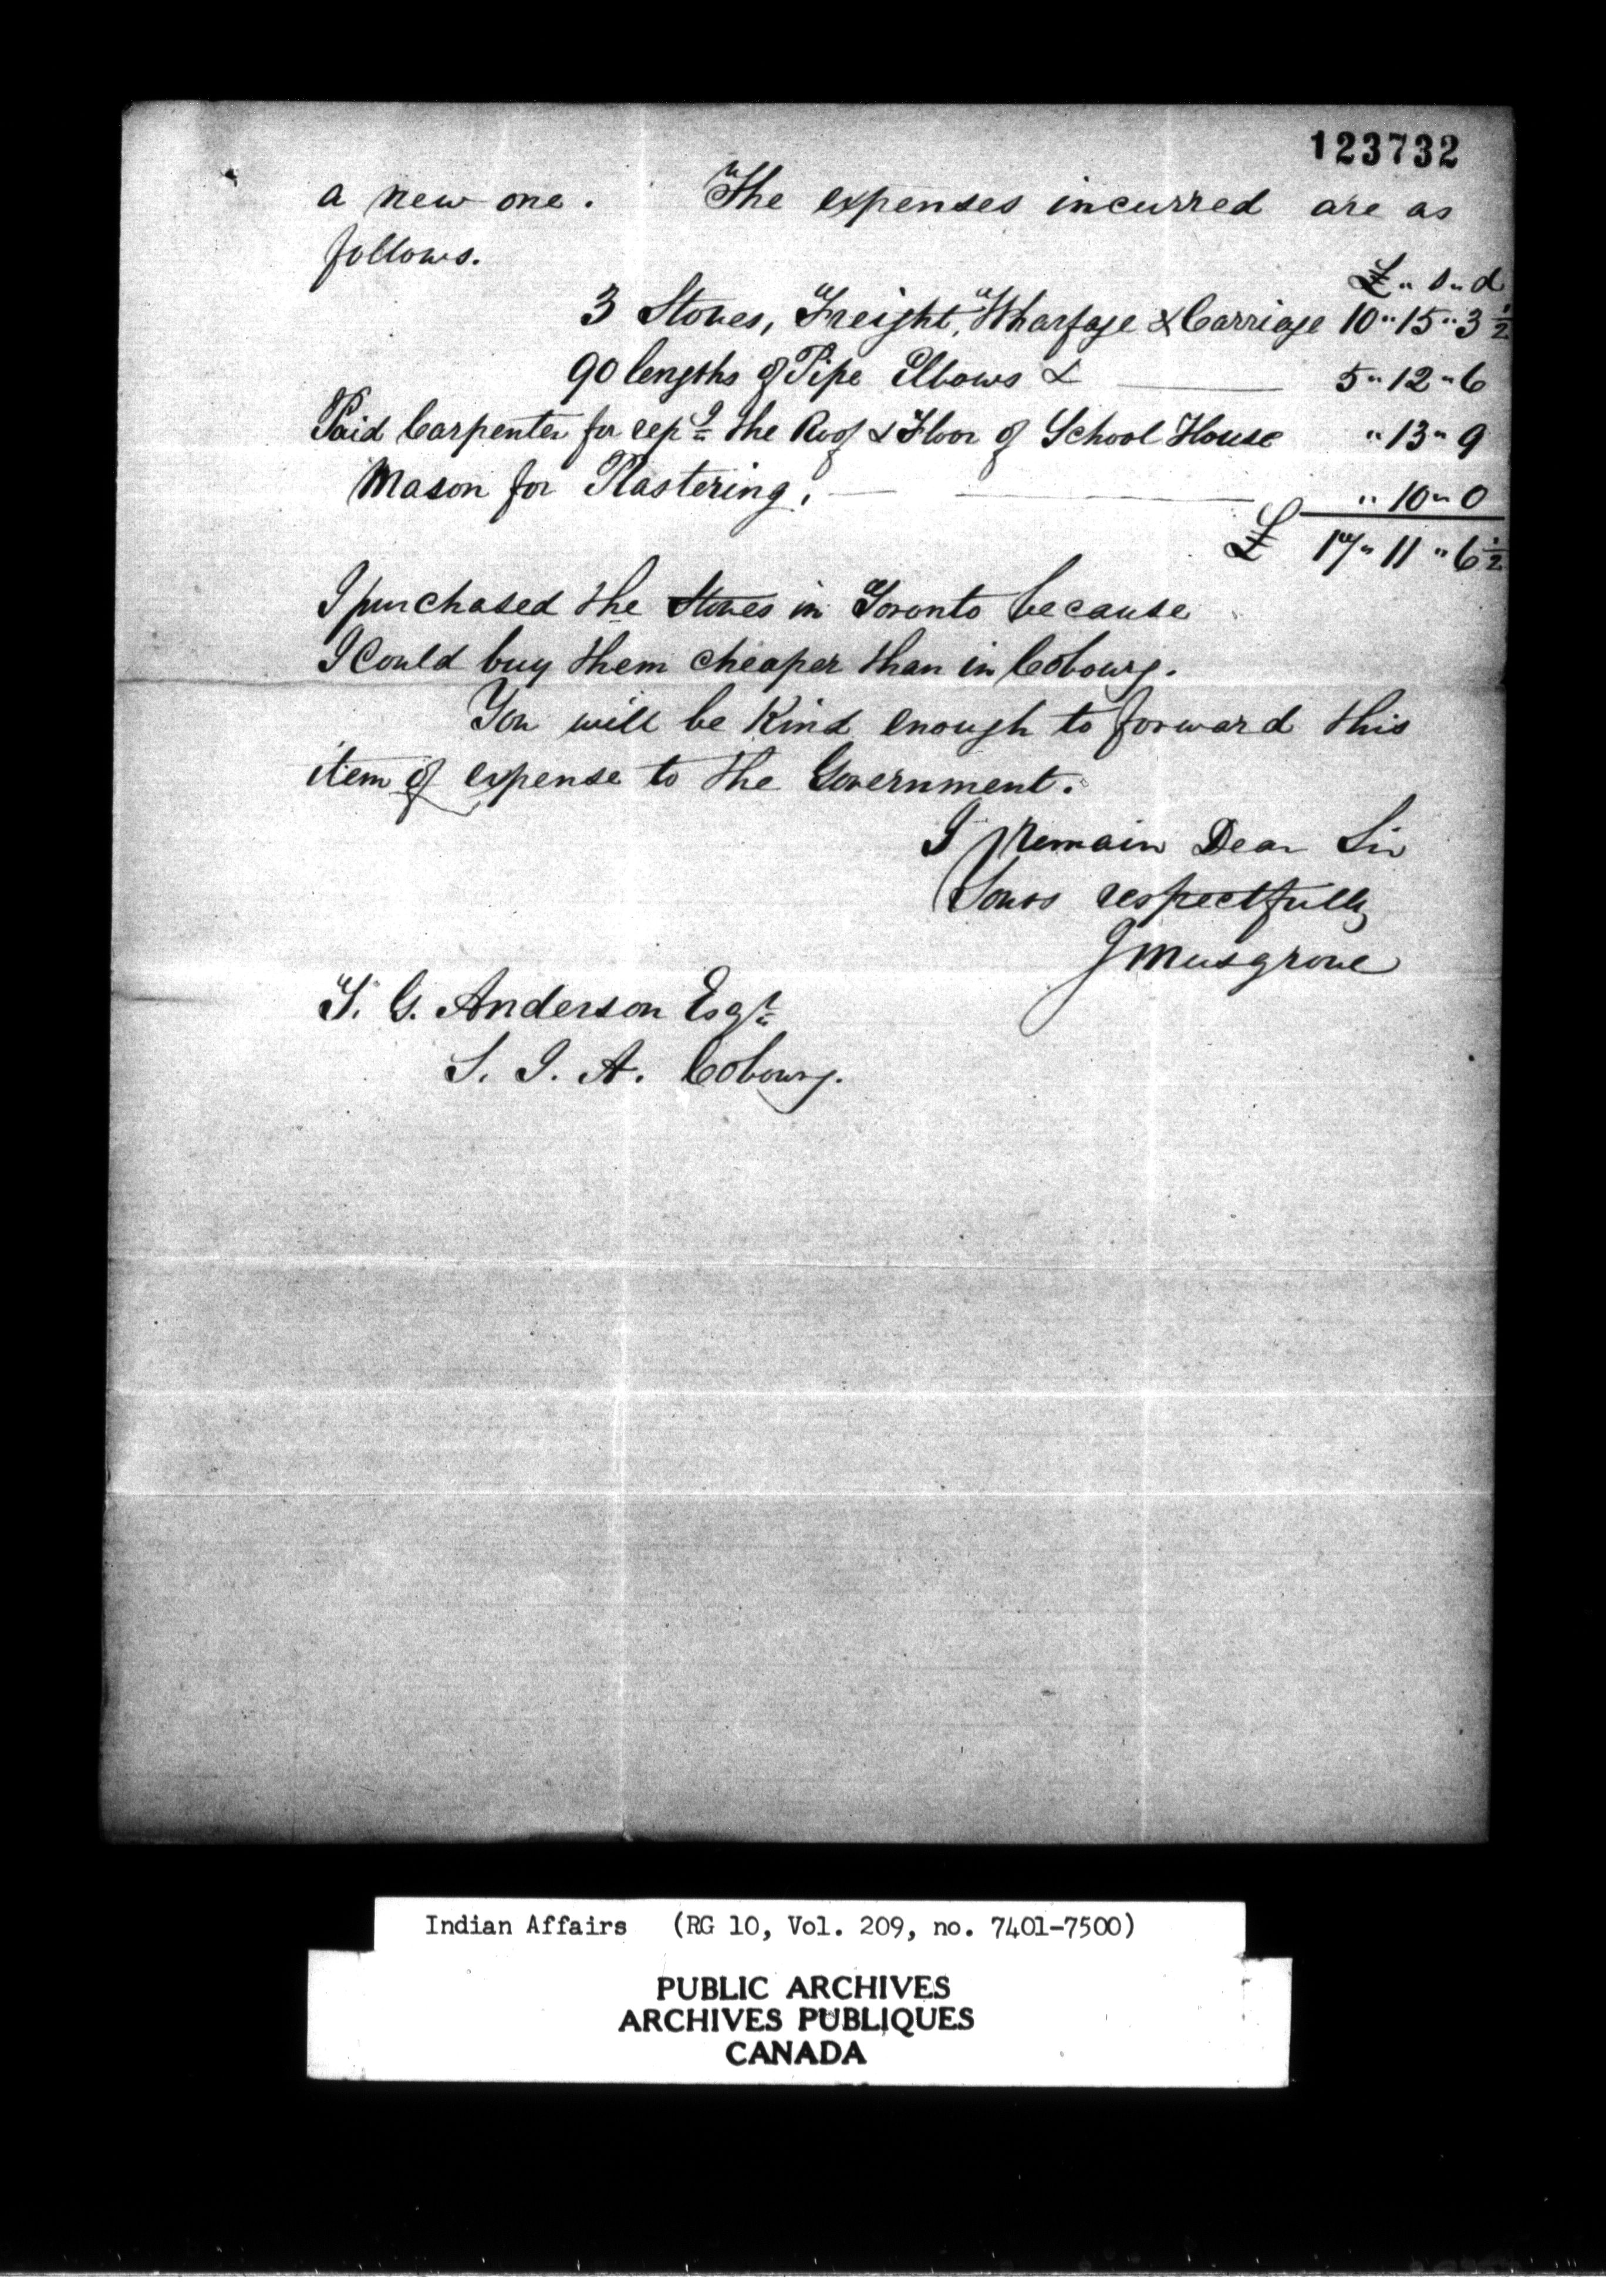 123732
a new one. The expenses incurred are as
follows.
£ " s " d
3 Stoves, Freight, Wharfage & Carriage 10 " 15 " 3 1/2
90 lengths of Pipe Elbows & 5 " 12 " 6
Paid Carpenter for repg the Roof & Floor of School House " 13 " 9
Mason for Plastering. " 10 " 0
£ 17 " 11 " 6 1/2
I purchased the Stoves in Toronto because
I Could buy them cheaper than in Cobourg.
You will be Kind enough to forward this
item of expense to the Government.
I remain Dear Sir
Yours respectfully
J Musgrove
T. G. Anderson Esqr
S. I. A. Cobourg.
Indian Affairs (RG 10, Vol. 209, no. 7401-7500)
PUBLIC ARCHIVES
ARCHIVES PUBLIQUES
CANADA